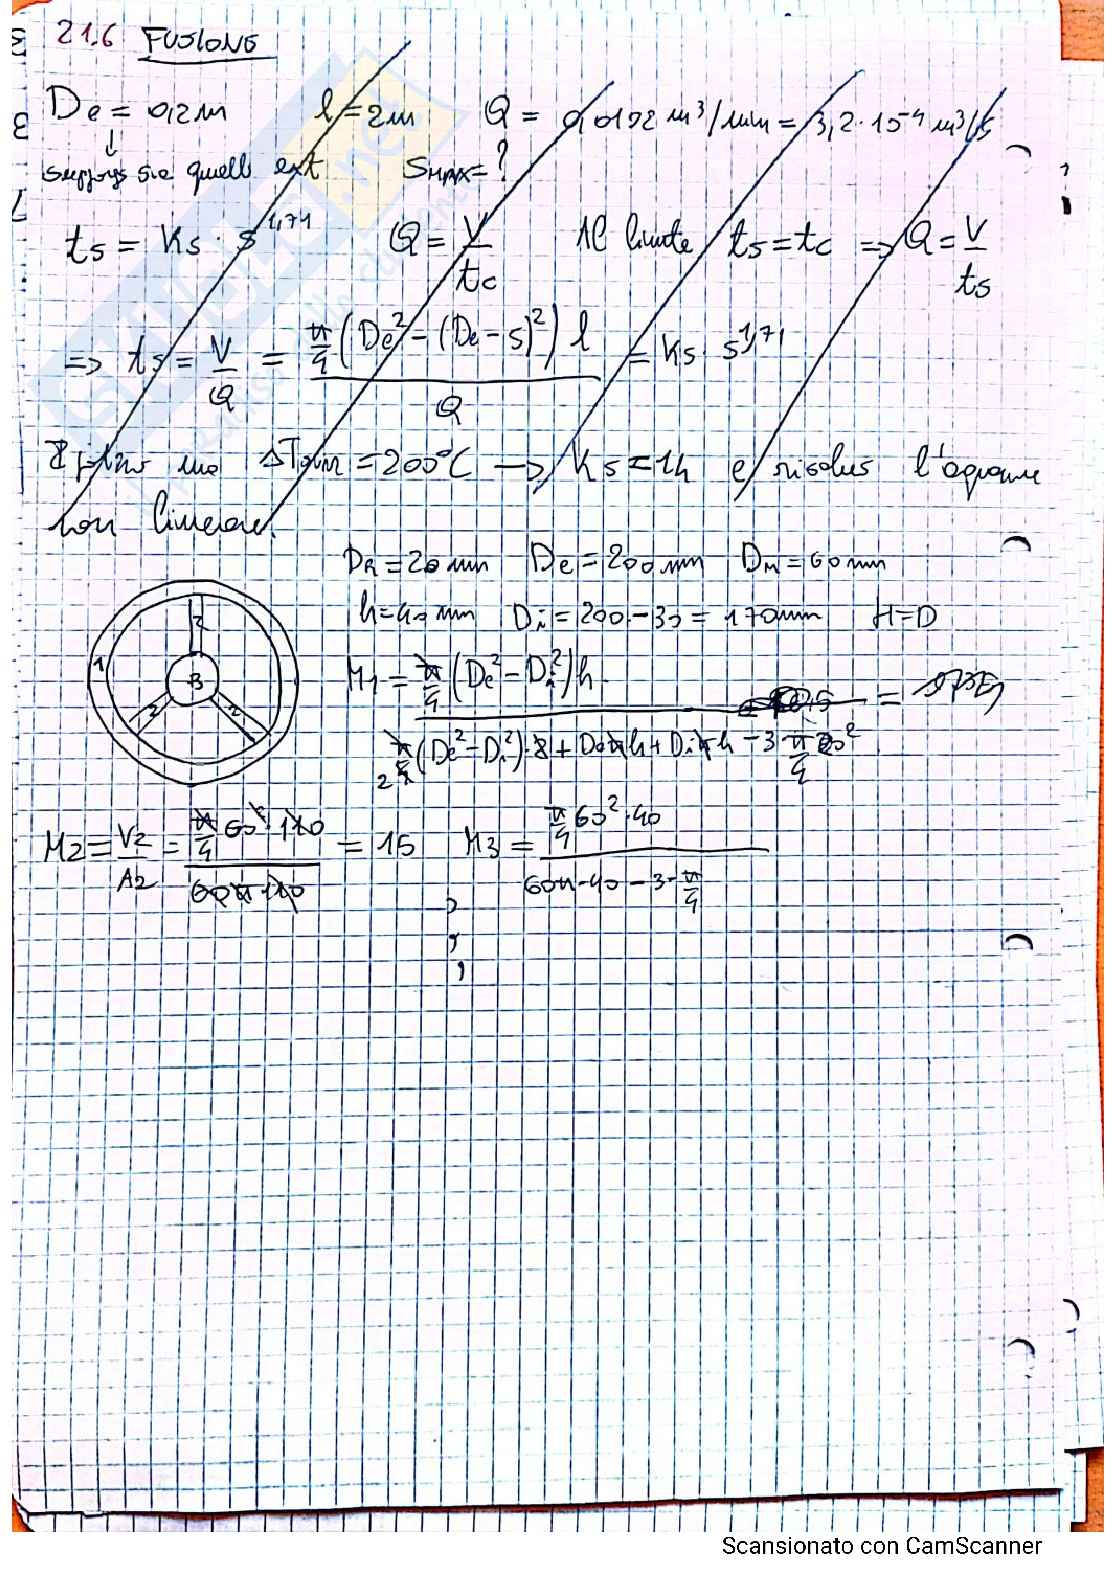 21.6 FUSIONE
De = 0,2 m l = 2m Q = 0,0192 m³/min = 3,2·10⁻⁴ m³/s
↓
suppongo sia quello ext Smax = ?
ts = Ks · s^1,71 Q = V/tc Al limite ts = tc => Q = V/ts
=> ts = V/Q = π/4 (De² - (De - s)²) l / Q = Ks · s^1,71
ΔTsurr = 200°C → Ks = 1h e risolvo l'equazione
non lineare.
DR = 20 mm De = 200 mm Dm = 60 mm
h = 40 mm Di = 200 - 30 = 170 mm H = D
1 2 2 2 3
M1 = π/4 (De² - Di²) h
M2 = V2/A2 = = 15 M3 = π/4 60² · 40 / 60π · 40 - 3 · π/4
Scansionato con CamScanner